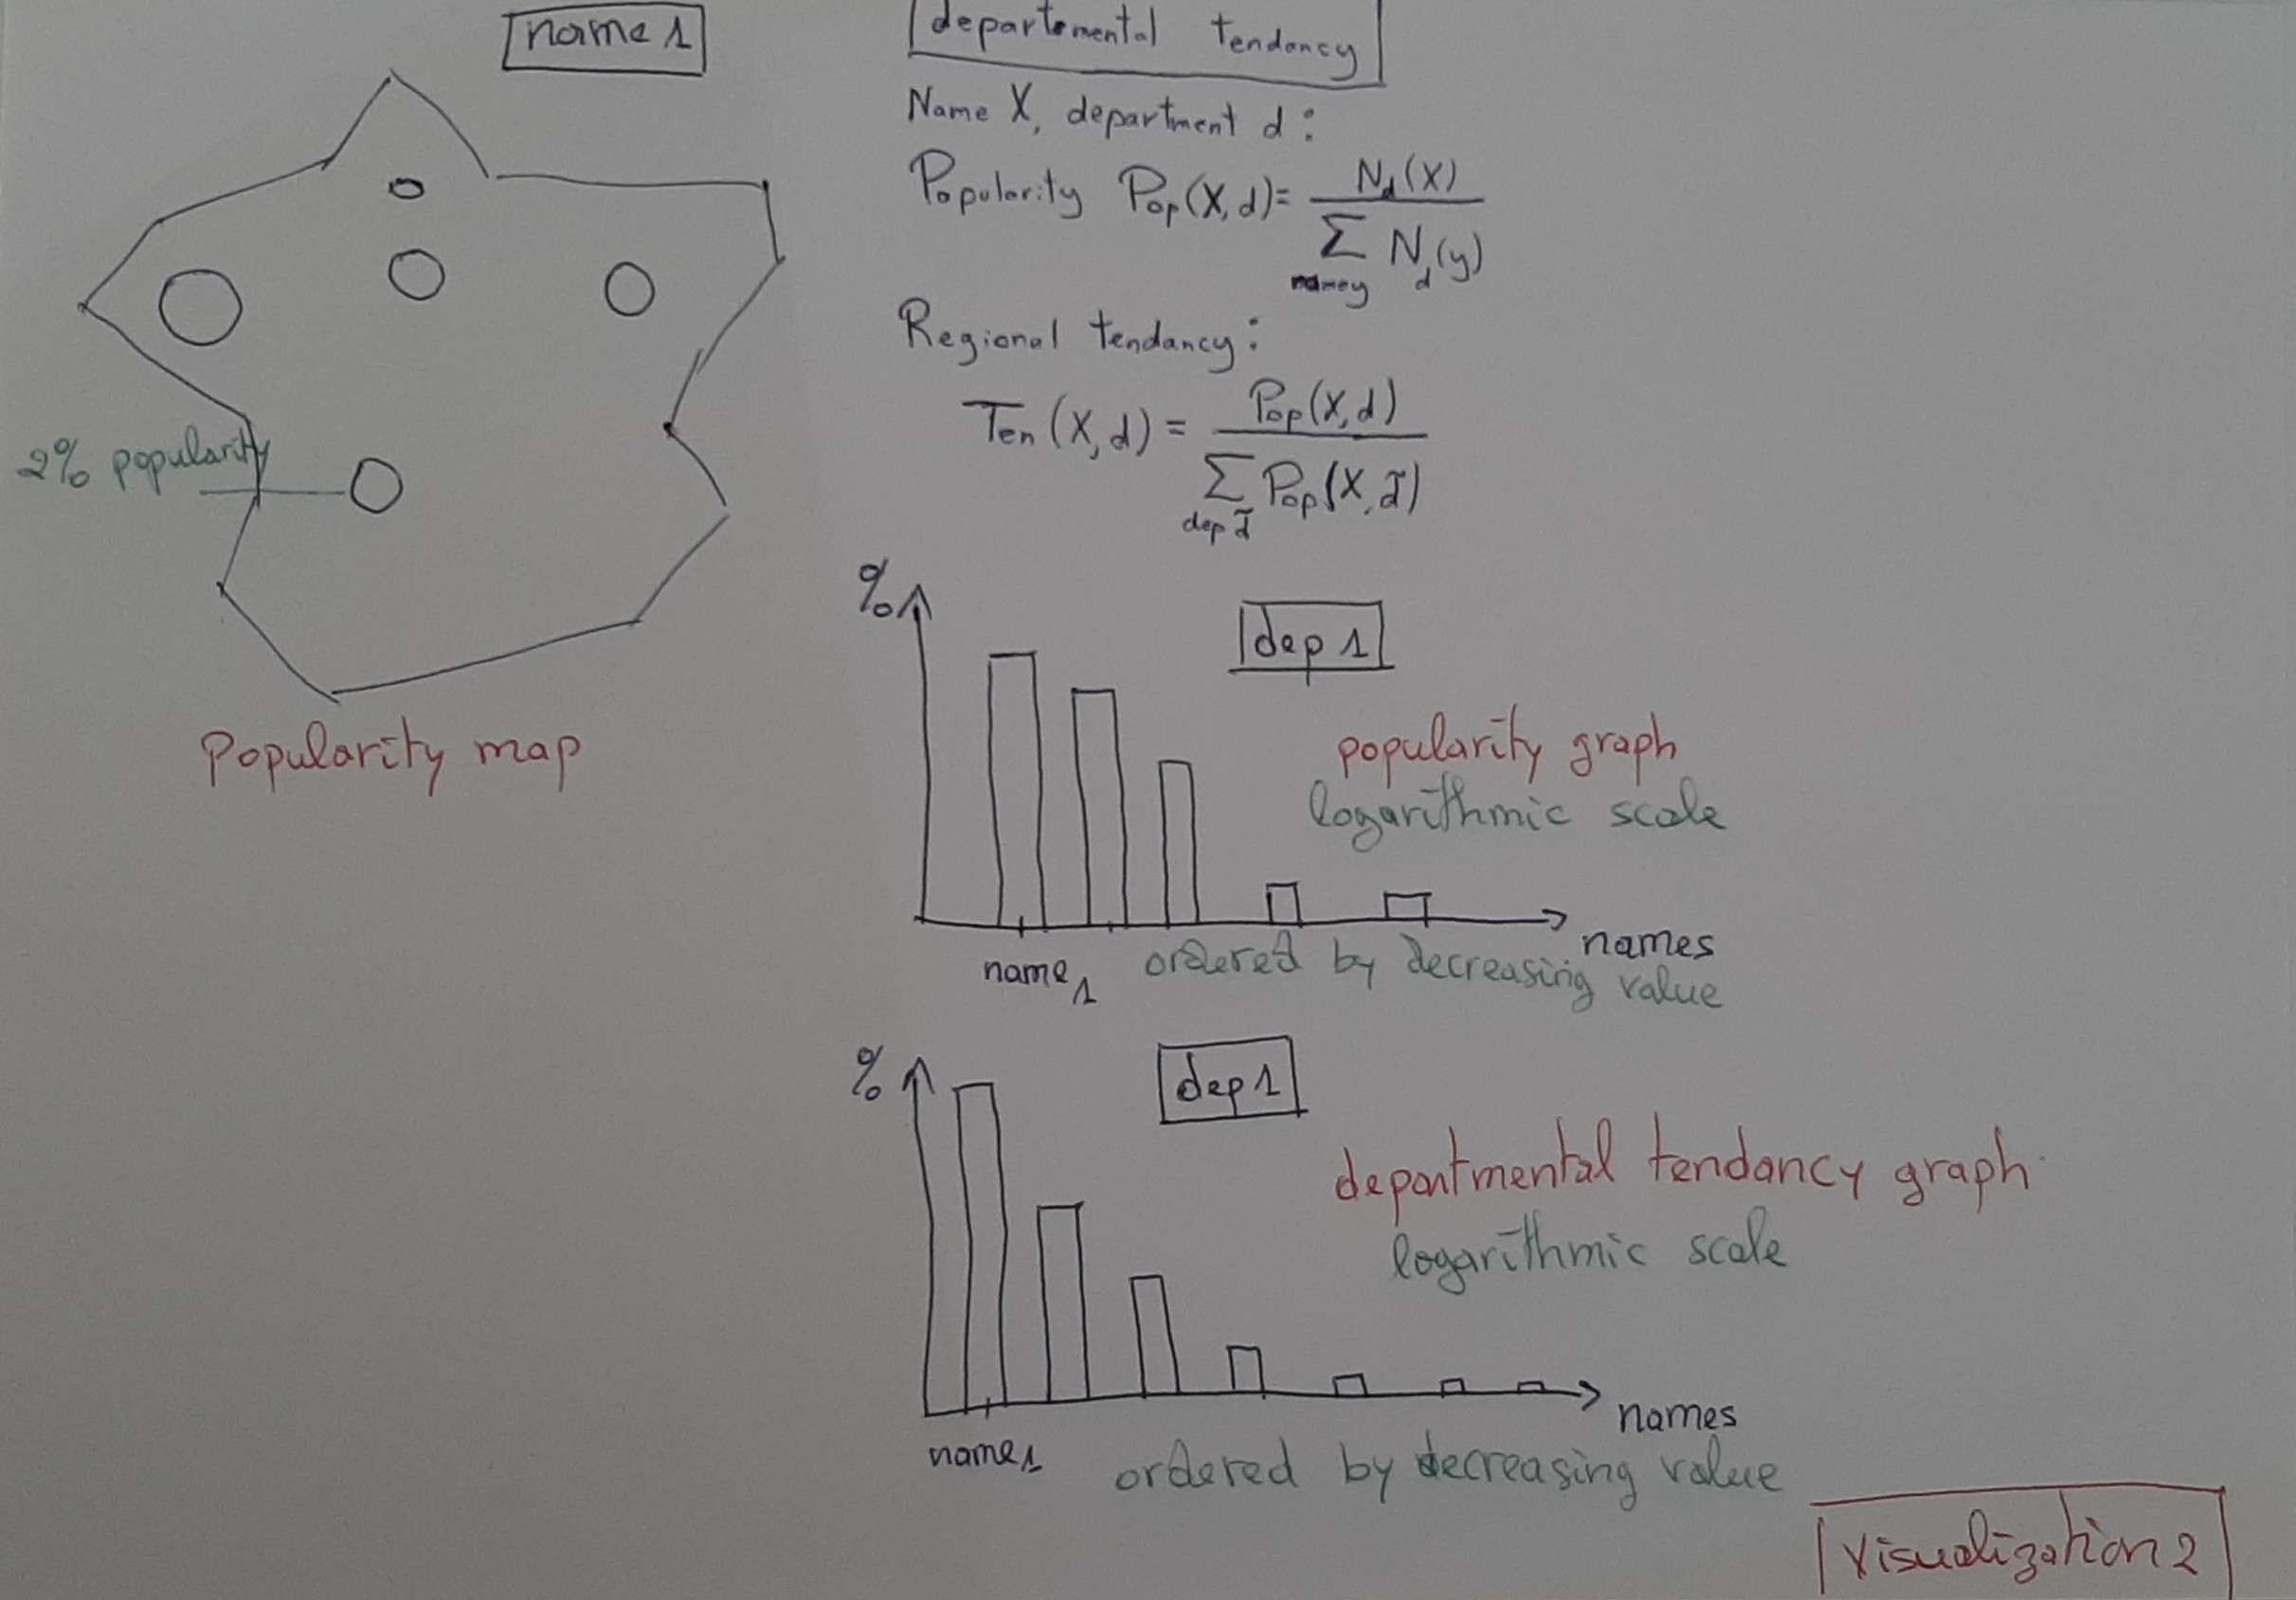 name 1
2% popularity
Popularity map
departemental tendancy
Name X, department d :
Popularity Pop(X,d) = N_d(X) / Σ_{name y} N_d(y)
Regional tendancy :
Ten(X,d) = Pop(X,d) / Σ_{dep d̃} Pop(X,d̃)
%
dep 1
popularity graph
logarithmic scale
names
name 1
ordered by decreasing value
%
dep 1
departmental tendancy graph
logarithmic scale
names
name 1
ordered by decreasing value
Visualization 2